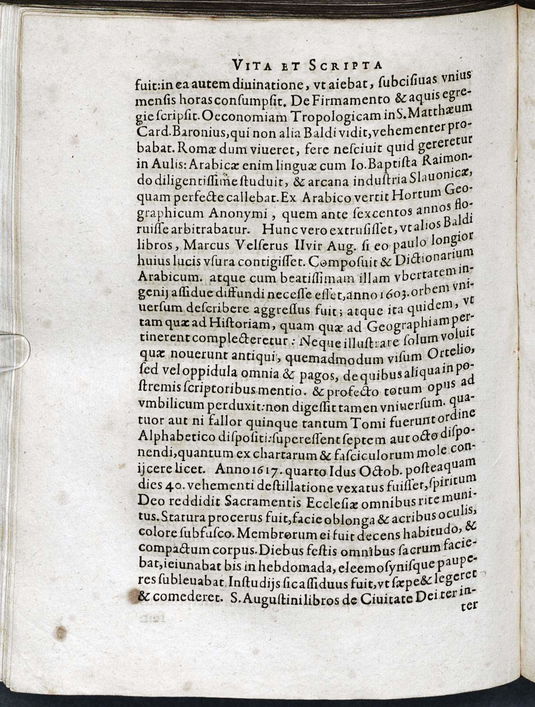 VITA ET SCRIPTA
fuit: in ea autem diuinatione, vt aiebat, subcisiuas vnius
mensis horas consumpsit. De Firmamento & aquis egre-
gie scripsit. Oeconomiam Tropologicam in S. Matthæum
Card. Baronius, qui non alia Baldi vidit, vehementer pro-
babat. Romæ dum viueret, fere nesciuit quid gereretur
in Aulis: Arabicæ enim linguæ cum Io. Baptista Raimon-
do diligentissime studuit, & arcana industria Slauonicæ,
quam perfecte callebat. Ex Arabico vertit Hortum Geo-
graphicum Anonymi, quem ante sexcentos annos flo-
ruisse arbitrabatur. Hunc vero extrusisset, vt alios Baldi
libros, Marcus Velserus IIvir Aug. si eo paulo longior
huius lucis vsura contigisset. Composuit & Dictionarium
Arabicum. atque cum beatissimam illam vbertatem in-
genij assidue diffundi necesse esset, anno 1603. orbem vni-
uersum describere aggressus fuit; atque ita quidem, vt
tam quæ ad Historiam, quam quæ ad Geographiam per-
tinerent complecteretur: Neque illustrare solum voluit
quæ nouerunt antiqui, quemadmodum visum Ortelio,
sed vel oppidula omnia & pagos, de quibus aliqua in po-
stremis scriptoribus mentio. & profecto totum opus ad
vmbilicum perduxit: non digessit tamen vniuersum. qua-
tuor aut ni fallor quinque tantum Tomi fuerunt ordine
Alphabetico dispositi: superessent septem aut octo dispo-
nendi, quantum ex chartarum & fasciculorum mole con-
ijcere licet. Anno 1617. quarto Idus Octob. posteaquam
dies 40. vehementi destillatione vexatus fuisset, spiritum
Deo reddidit Sacramentis Ecclesiæ omnibus rite muni-
tus. Statura procerus fuit, facie oblonga & acribus oculis,
colore subfusco. Membrorum ei fuit decens habitudo, &
compactum corpus. Diebus festis omnibus sacrum facie-
bat, ieiunabat bis in hebdomada, eleemosynisque paupe-
res subleuabat. In studijs sic assiduus fuit, vt sæpe & legeret
& comederet. S. Augustini libros de Ciuitate Dei ter in-
ter